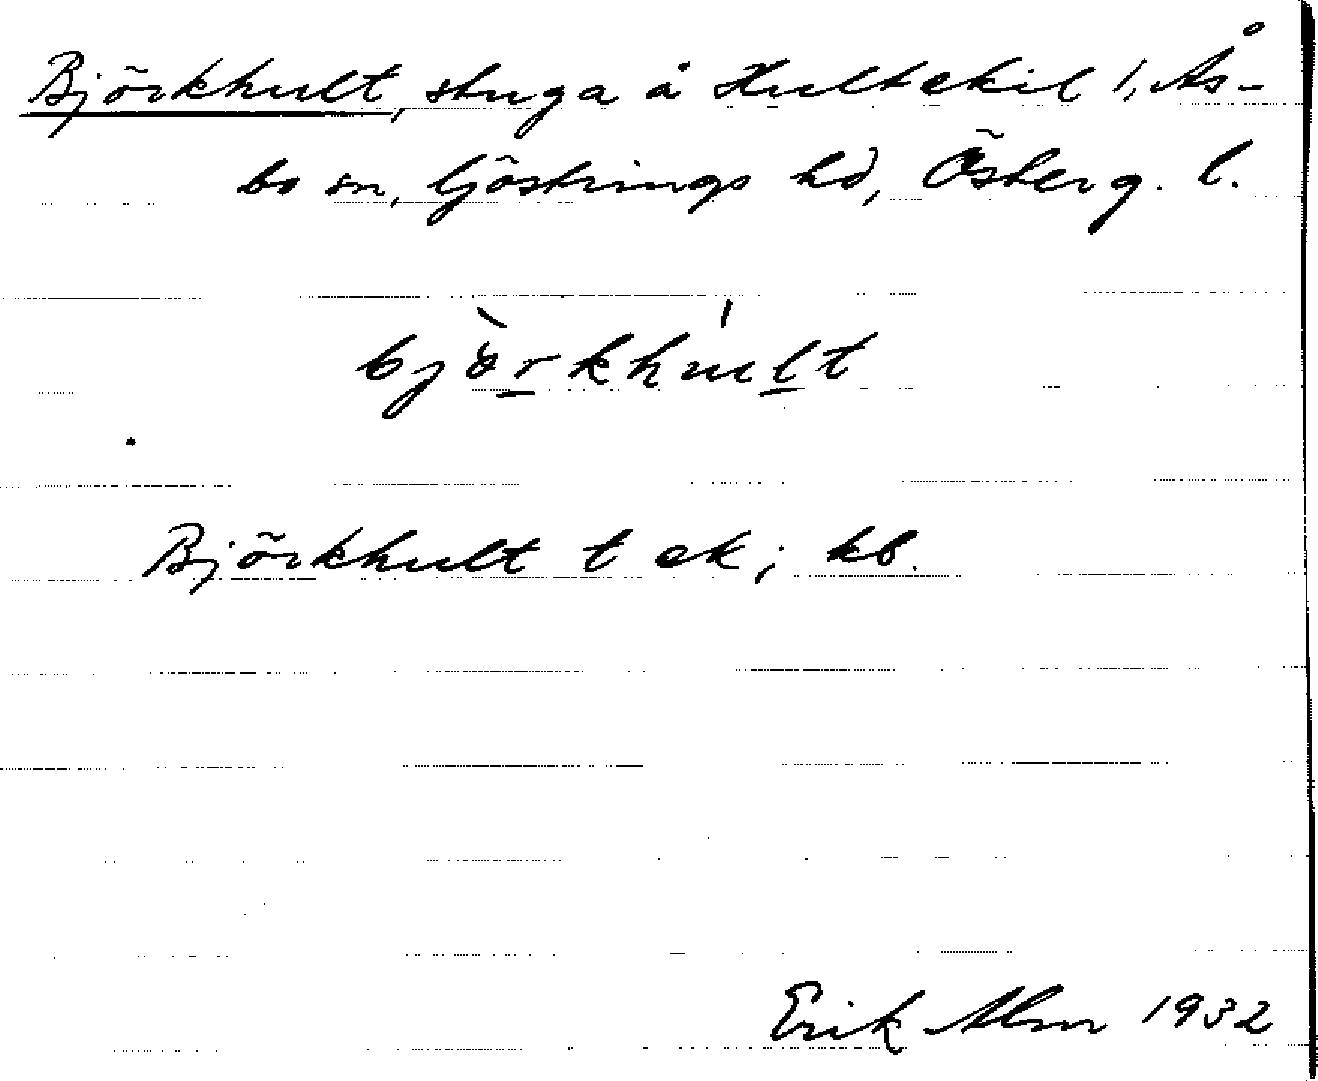 Björkhult, stuga å Hultskil 1, Ås-
bo sn, Göstrings hd, Österg. l.
bjö̀rkhúlt
Björkhult t ek; kb.
Erik Alm 1932